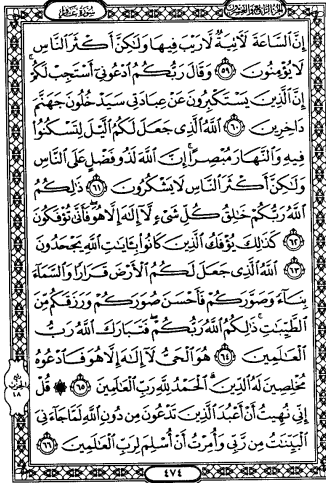 سُورَةُ غَافِرٍ
إِنَّ ٱلسَّاعَةَ لَأٓتِيَةٌ لَّا رَيْبَ فِيهَا وَلَٰكِنَّ أَكْثَرَ ٱلنَّاسِ
لَا يُؤْمِنُونَ ٥٩ وَقَالَ رَبُّكُمُ ٱدْعُونِىٓ أَسْتَجِبْ لَكُمْ
إِنَّ ٱلَّذِينَ يَسْتَكْبِرُونَ عَنْ عِبَادَتِى سَيَدْخُلُونَ جَهَنَّمَ
دَاخِرِينَ ٦٠ ٱللَّهُ ٱلَّذِى جَعَلَ لَكُمُ ٱلَّيْلَ لِتَسْكُنُوا۟
فِيهِ وَٱلنَّهَارَ مُبْصِرًا إِنَّ ٱللَّهَ لَذُو فَضْلٍ عَلَى ٱلنَّاسِ
وَلَٰكِنَّ أَكْثَرَ ٱلنَّاسِ لَا يَشْكُرُونَ ٦١ ذَٰلِكُمُ
ٱللَّهُ رَبُّكُمْ خَٰلِقُ كُلِّ شَىْءٍ لَّآ إِلَٰهَ إِلَّا هُوَ فَأَنَّىٰ تُؤْفَكُونَ
٦٢ كَذَٰلِكَ يُؤْفَكُ ٱلَّذِينَ كَانُوا۟ بِـَٔايَٰتِ ٱللَّهِ يَجْحَدُونَ
٦٣ ٱللَّهُ ٱلَّذِى جَعَلَ لَكُمُ ٱلْأَرْضَ قَرَارًا وَٱلسَّمَآءَ
بِنَآءً وَصَوَّرَكُمْ فَأَحْسَنَ صُوَرَكُمْ وَرَزَقَكُم مِّنَ
ٱلطَّيِّبَٰتِ ذَٰلِكُمُ ٱللَّهُ رَبُّكُمْ فَتَبَارَكَ ٱللَّهُ رَبُّ
ٱلْعَٰلَمِينَ ٦٤ هُوَ ٱلْحَىُّ لَآ إِلَٰهَ إِلَّا هُوَ فَٱدْعُوهُ
مُخْلِصِينَ لَهُ ٱلدِّينَ ٱلْحَمْدُ لِلَّهِ رَبِّ ٱلْعَٰلَمِينَ ٦٥ ۞ قُلْ
إِنِّى نُهِيتُ أَنْ أَعْبُدَ ٱلَّذِينَ تَدْعُونَ مِن دُونِ ٱللَّهِ لَمَّا جَآءَنِىَ
ٱلْبَيِّنَٰتُ مِن رَّبِّى وَأُمِرْتُ أَنْ أُسْلِمَ لِرَبِّ ٱلْعَٰلَمِينَ ٦٦
٤٧٤